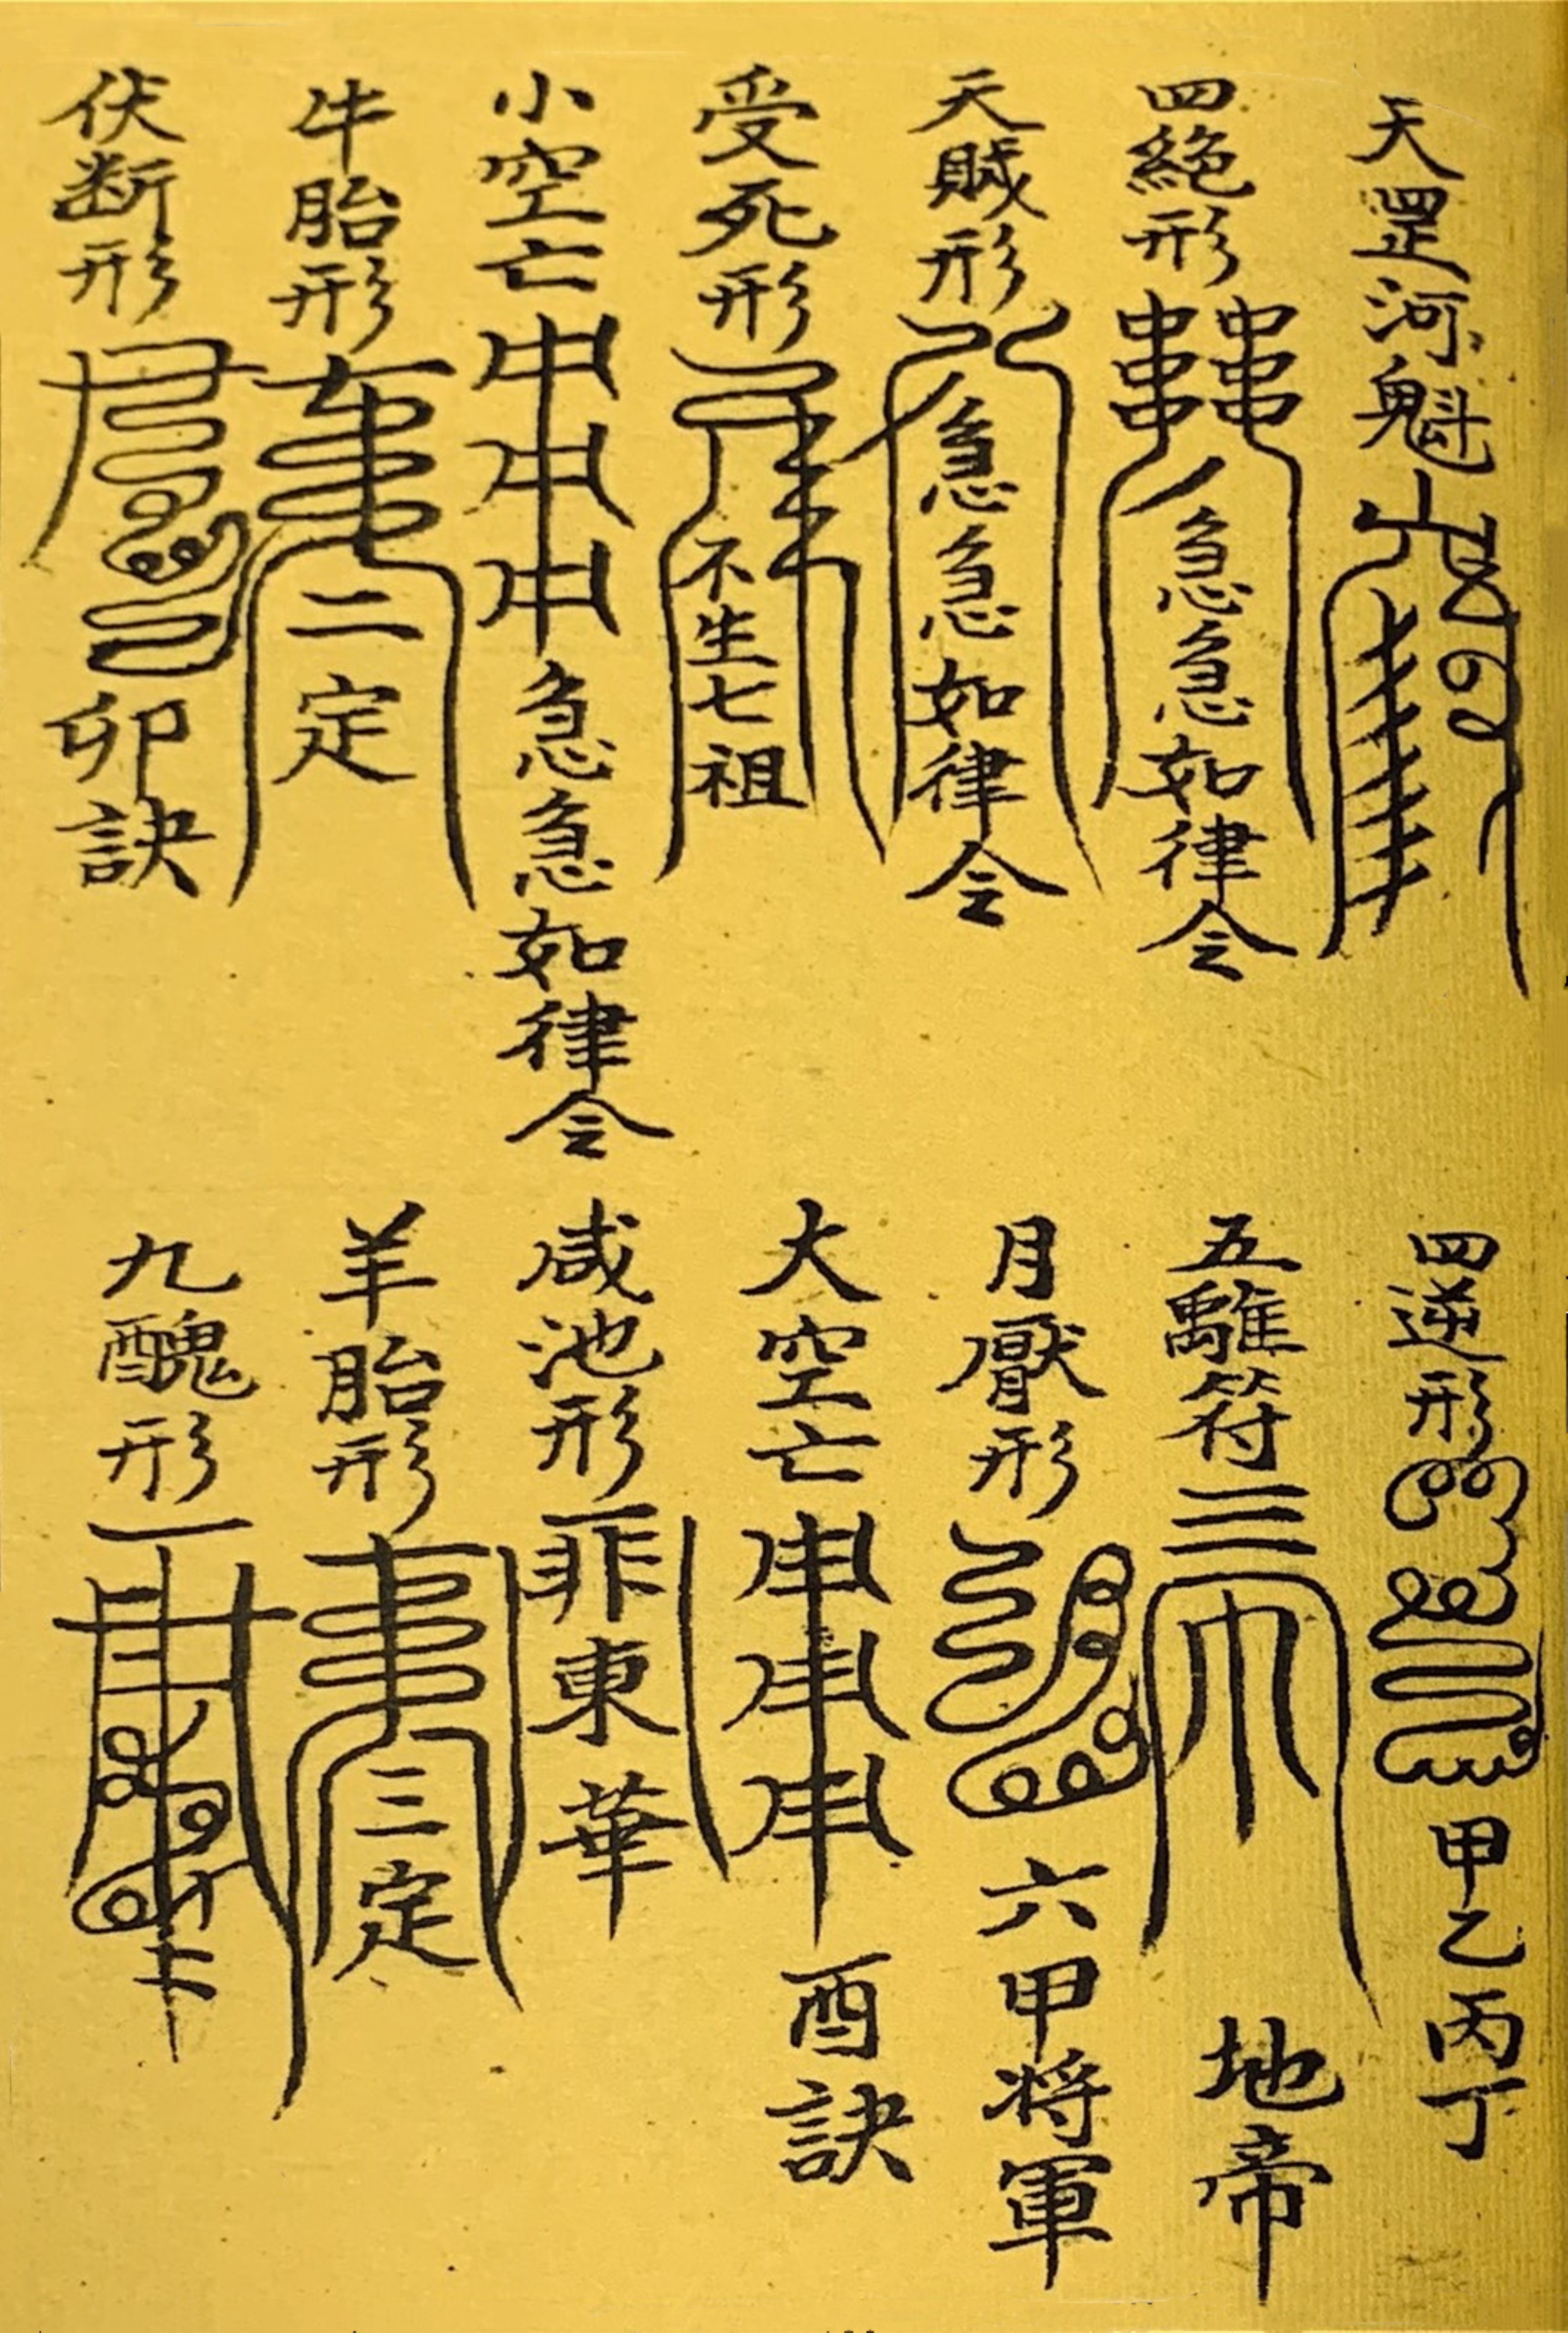 天罡河魁
四絕形 急急如律令
天賊形 急急如律令
受死形 不生七祖
小空亡 急急如律令
牛胎形 二定
伏断形 卯訣
四逆形 甲乙丙丁
五離符 地帝
月厭形 六甲将軍
大空亡 酉訣
咸池形 東華
羊胎形 三定
九醜形